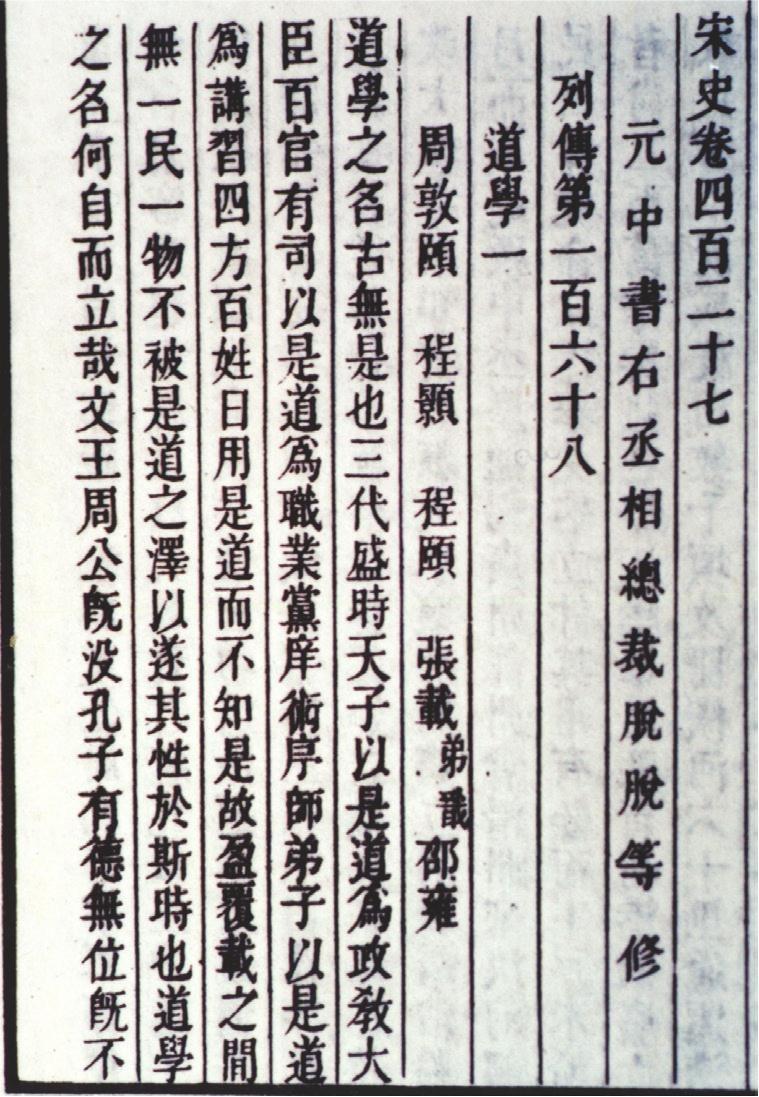 宋史卷四百二十七
元中書右丞相總裁脫脫等修
列傳第一百六十八
道學一
周敦頤 程顥 程頤 張載弟戩 邵雍
道學之名古無是也三代盛時天子以是道爲政教大
臣百官有司以是道爲職業黨庠術序師弟子以是道
爲講習四方百姓日用是道而不知是故盈覆載之間
無一民一物不被是道之澤以遂其性於斯時也道學
之名何自而立哉文王周公旣没孔子有德無位旣不